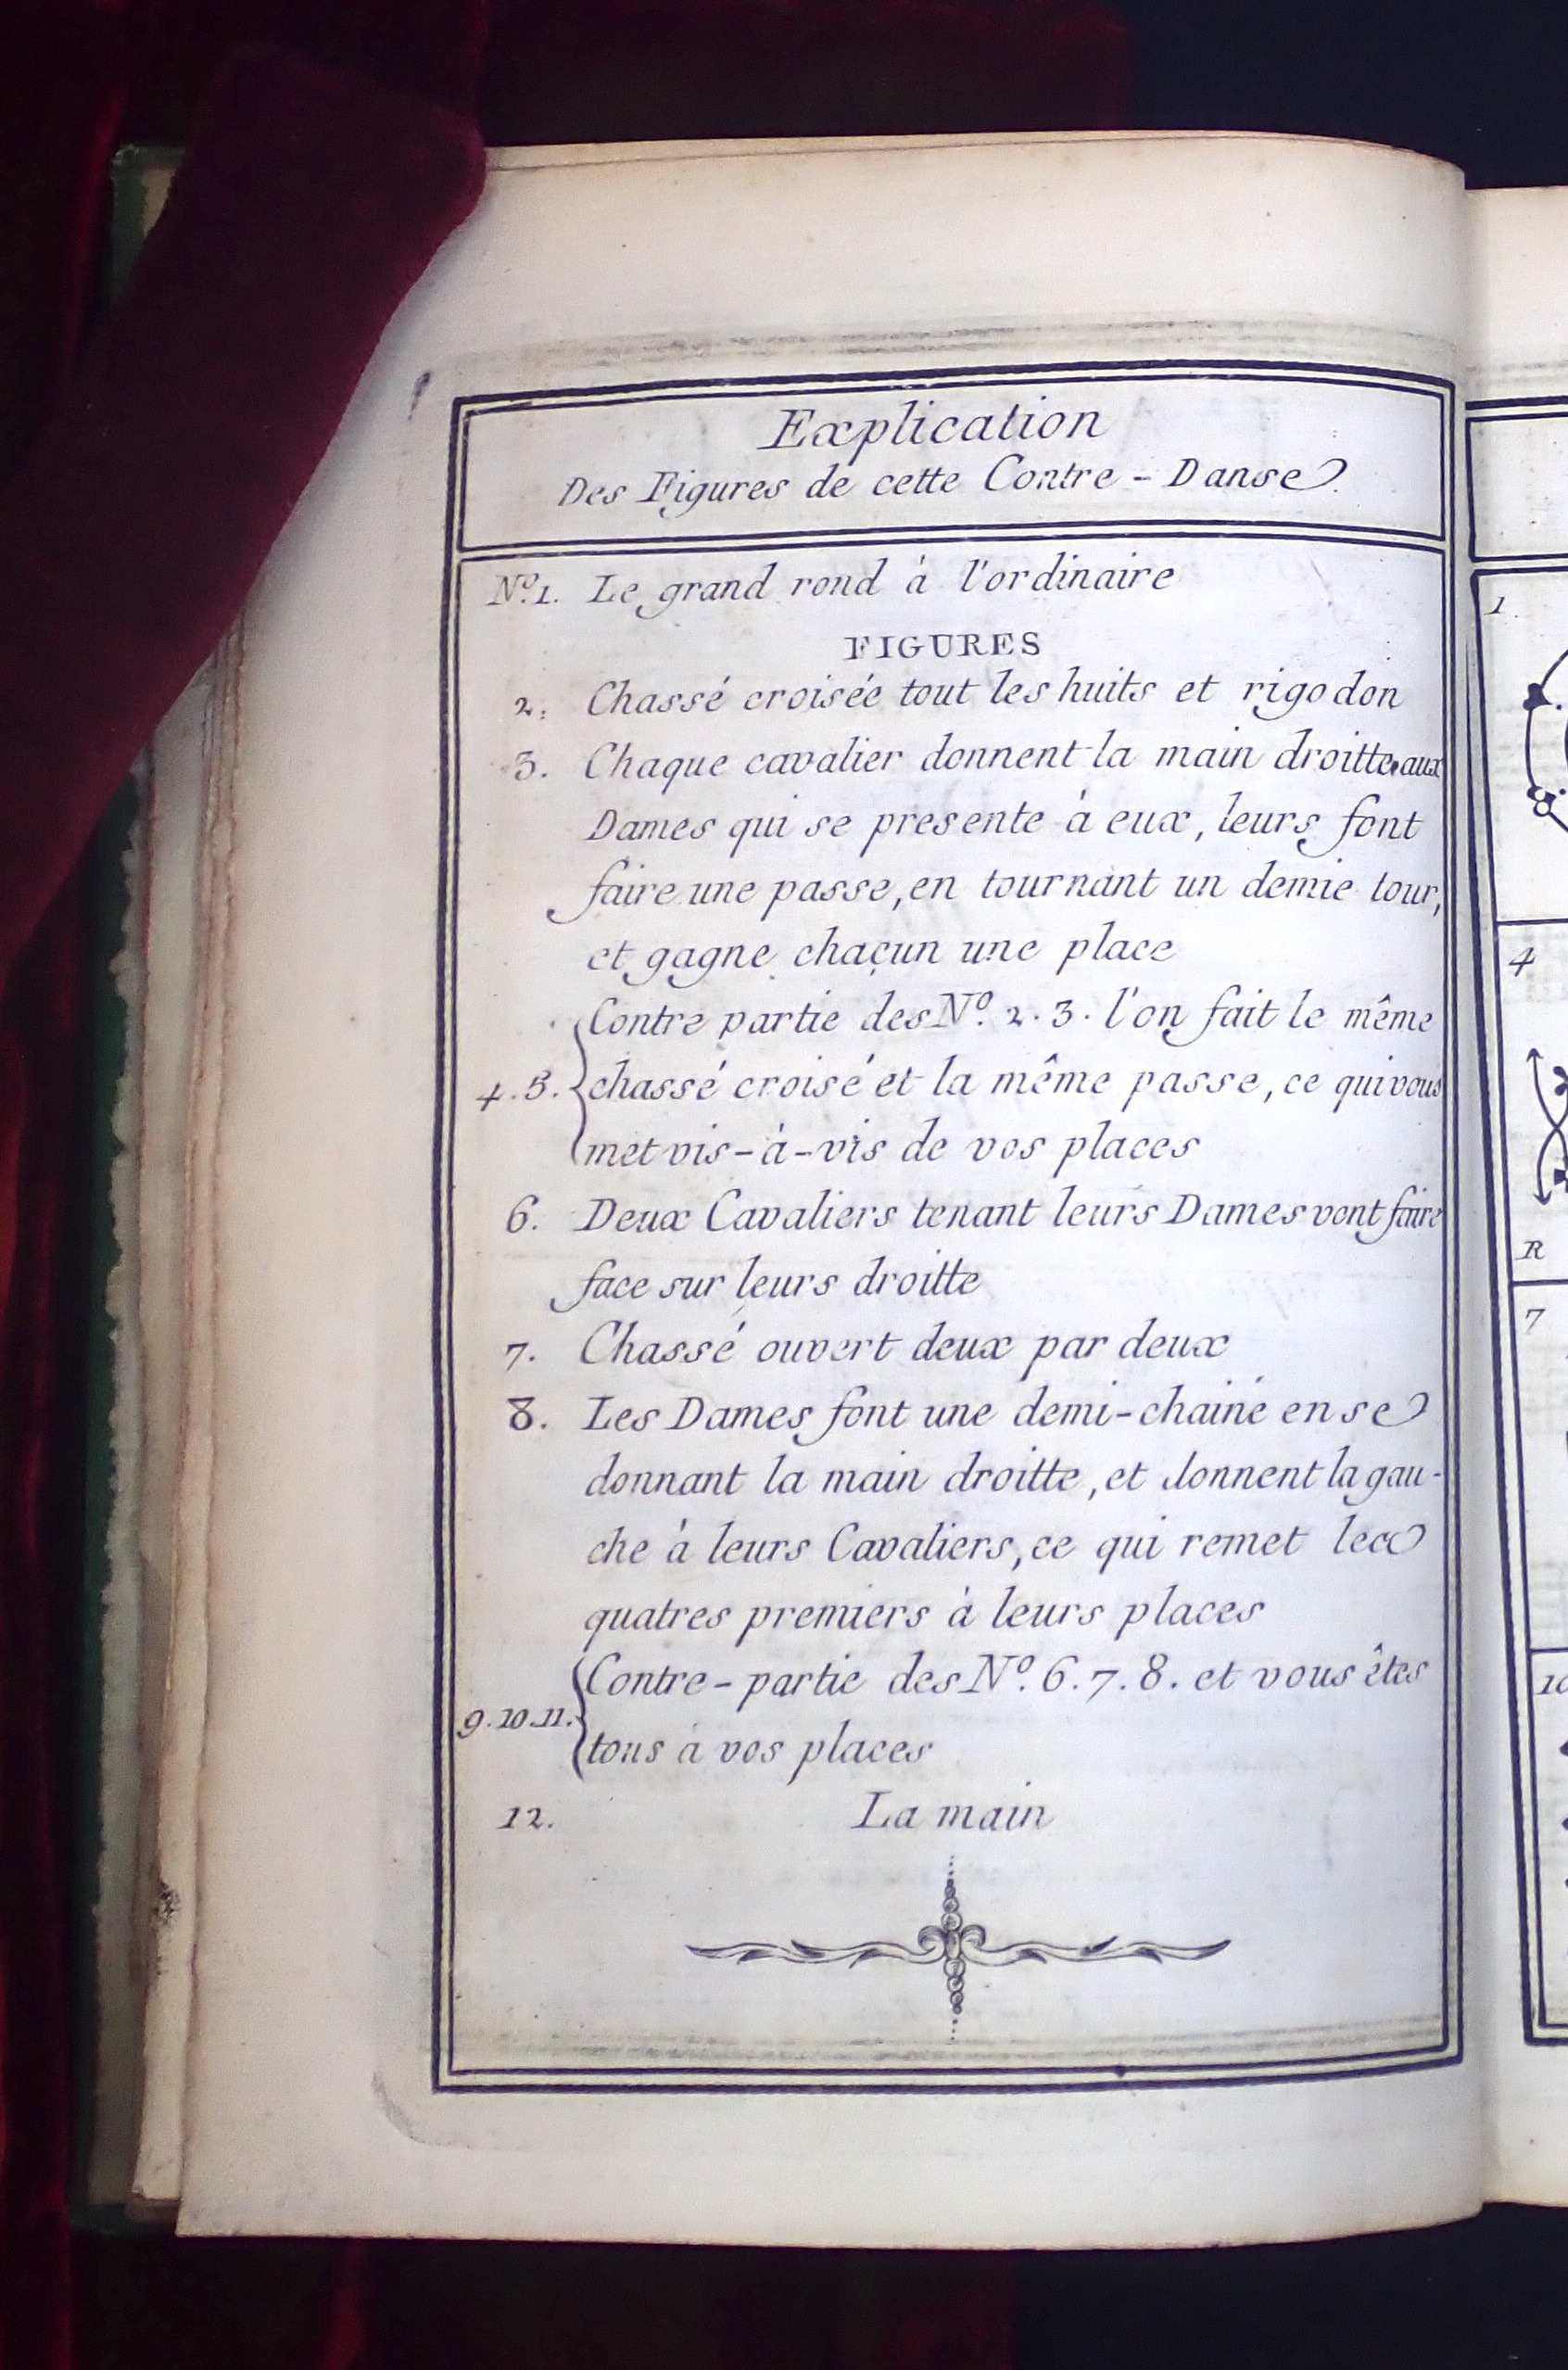 Explication
Des Figures de cette Contre - Danse.
Nº. 1. Le grand rond à l'ordinaire
FIGURES
2. Chassé croisée tout les huits et rigodon
3. Chaque cavalier donnent la main droitte aux
Dames qui se presente à eux, leurs font
faire une passe, en tournant un demie tour,
et gagne chacun une place
Contre partie des Nº. 2. 3. l'on fait le même
4. 5. chassé croisé et la même passe, ce qui vous
met vis-à-vis de vos places
6. Deux Cavaliers tenant leurs Dames vont faire
face sur leurs droitte
7. Chassé ouvert deux par deux
8. Les Dames font une demi-chainé en se
donnant la main droitte, et donnent la gau-
che à leurs Cavaliers, ce qui remet les
quatres premiers à leurs places
Contre-partie des Nº. 6. 7. 8. et vous êtes
9. 10. 11. tous à vos places
12. La main
1
4
R
7
10